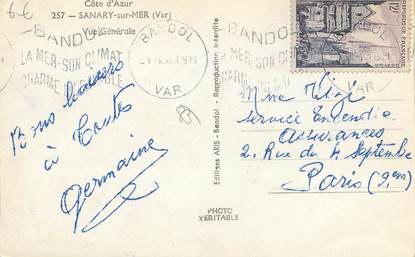 6-6
Côte d'Azur
257 - SANARY-sur-MER (Var)
Vue Générale
BANDOL
LA MER-SON CLIMAT
CHARME
BANDOL
VAR
BANDOL
MER-SON
VAR
12F
Reproduction interdite
Editions ARIS - Bandol -
PHOTO
VERITABLE
83
Bons baisers
à toutes
Germaine
Mme
Service Incendie
Assurances
2. Rue du 4 Septembre
Paris (2em)